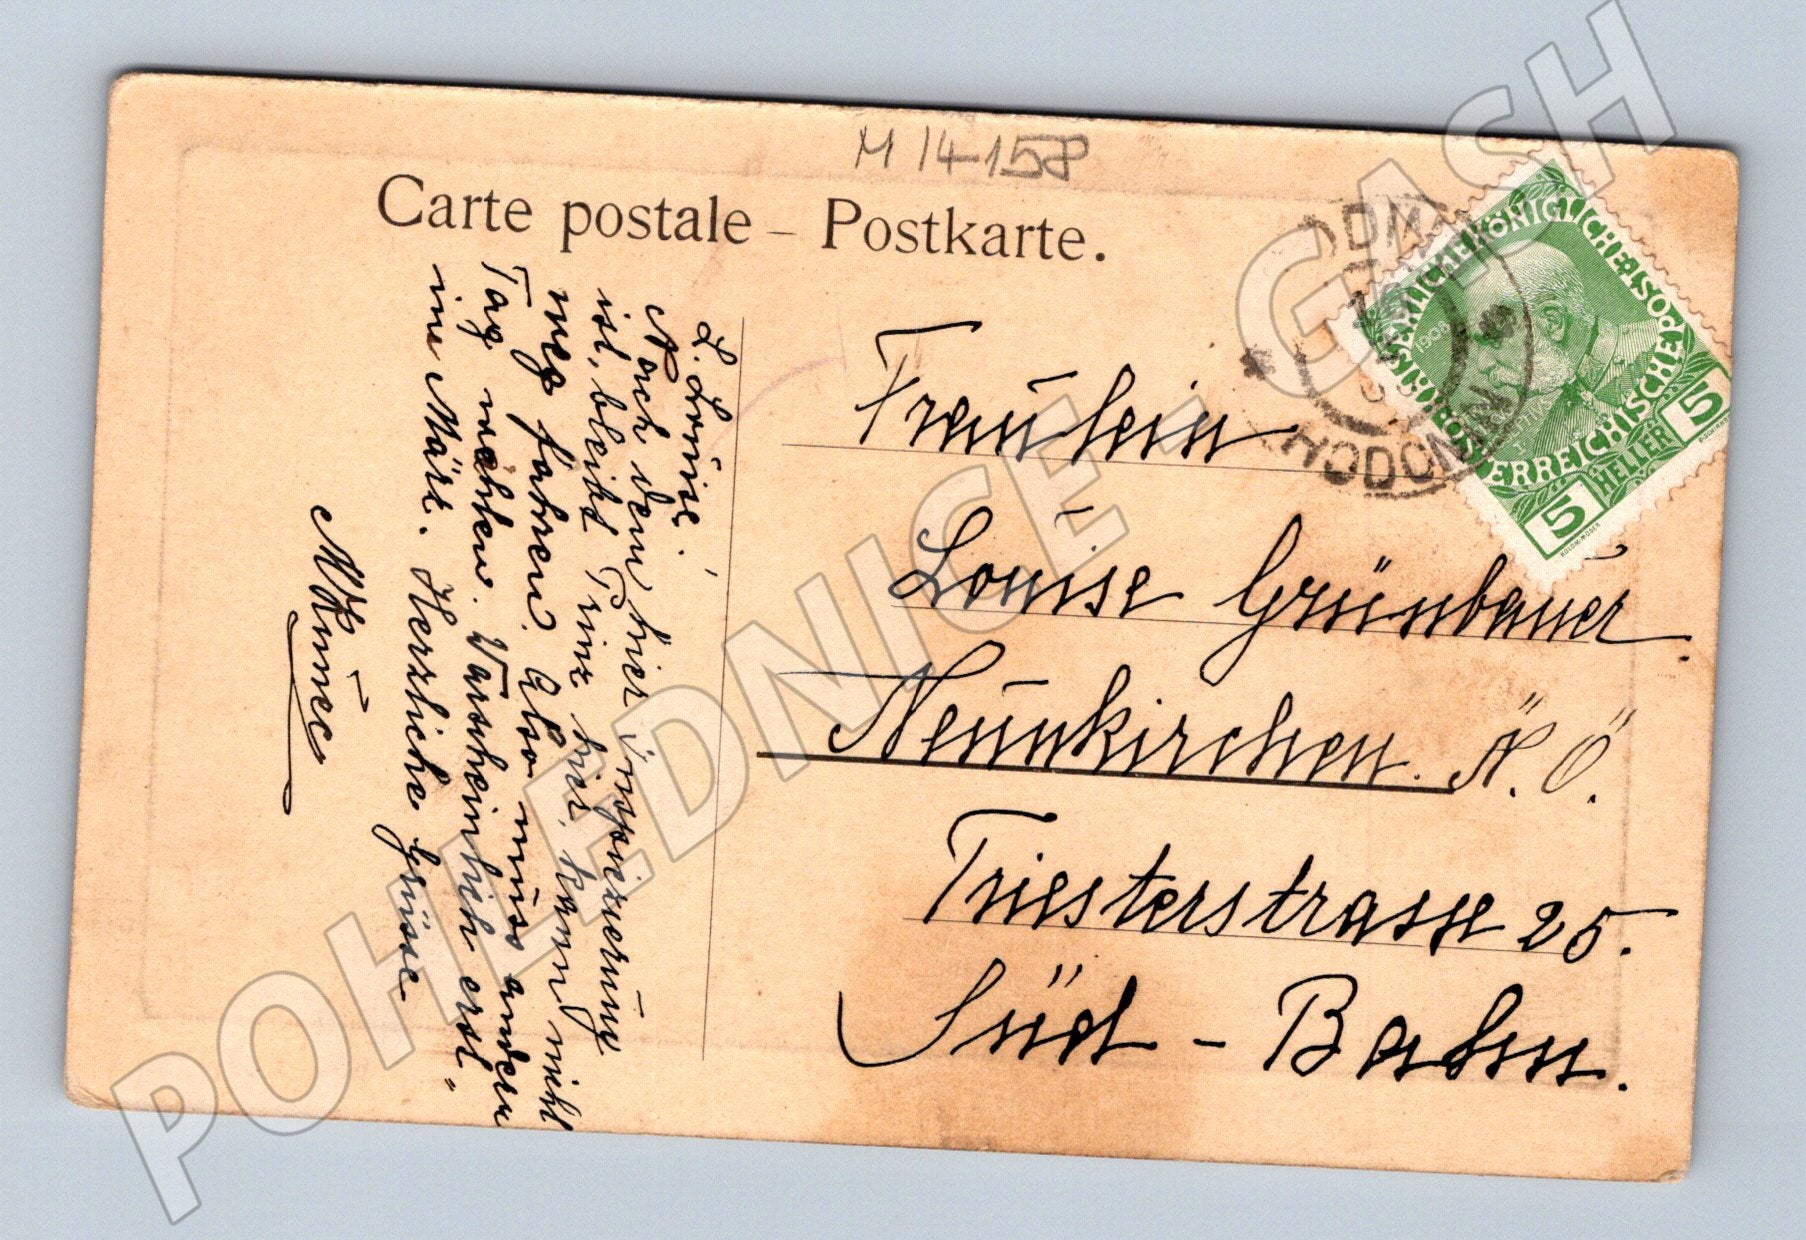 M 14-158
Carte postale – Postkarte.
L. Louise!
Nach dem hier
ist, bleibt Prinz hier, kann nicht
weg fahren. Also muss andern
Tag wählen. Varsheinlich erst
im März. Herzliche Grüsse
Fräulein
Louise Grünbauer.
Neunkirchen. N. Ö.
Triesterstrasse 25.
Süd - Bahn.
HODONIN
KAISERLICHE KÖNIGLICHE
ÖSTERREICHISCHE POST
1908
5 HELLER 5
POHLEDNICE - GASH